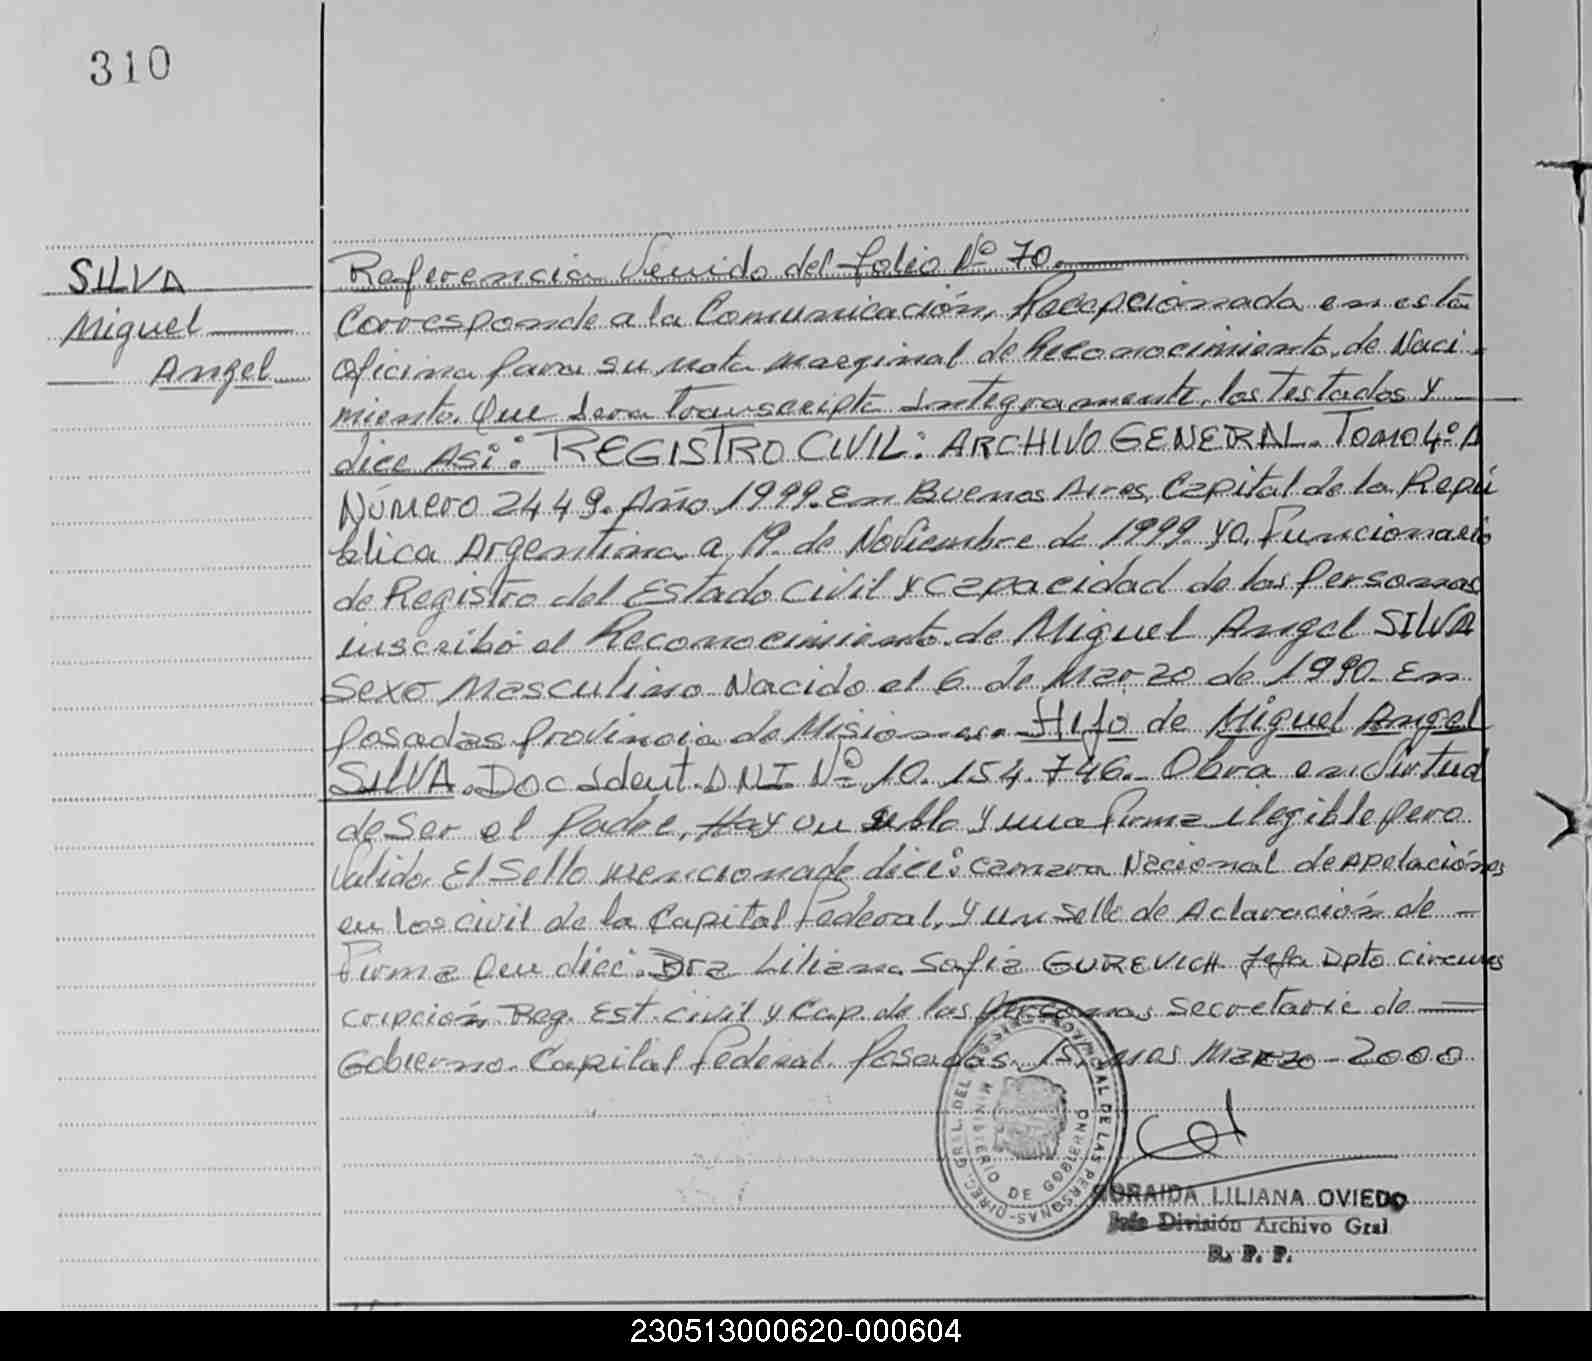 310
SILVA
Miguel
Angel
Referencia Venido del folio Nº 70.
Corresponde a la Comunicación, Recepcionada en esta
oficina para su nota marginal de Reconocimiento de Naci-
miento. Que sera Transcripta Integramente, los Testados y
dice Asi: REGISTRO CIVIL: ARCHIVO GENERAL. Tomo 4º A
Número 2449. Año 1999. En Buenos Aires, Capital de la Repú
blica Argentina a 19 de Noviembre de 1999. yo, Funcionario
de Registro del Estado Civil y Capacidad de las Personas
inscribo el Reconocimiento de Miguel Angel SILVA
Sexo Masculino Nacido el 6 de Marzo de 1990. En
Posadas Provincia de Misiones. Hijo de Miguel Angel
SILVA. Doc Ident. DNI Nº 10.154.746.- Obra en Virtud
de Ser el Padre, Hay un sello y una Firma ilegible pero
Valido. El Sello mencionado dice: Camara Nacional de Apelaciones
en los civil de la Capital Federal, y un sello de Aclaración de -
Firma que dice: Dra Liliana Sofia GUREVICH Jefa Dpto Circuns
cripción Reg. Est. civil y Cap. de las Personas, Secretaric de
Gobierno. Capital Federal. Posadas, 15, mes Marzo - 2000
DIREC. GRAL. DEL REGISTRO PROVINCIAL DE LAS PERSONAS
MINISTERIO DE GOBIERNO
ZORAIDA LILIANA OVIEDO
Jefe División Archivo Gral
R. P. P.
230513000620-000604